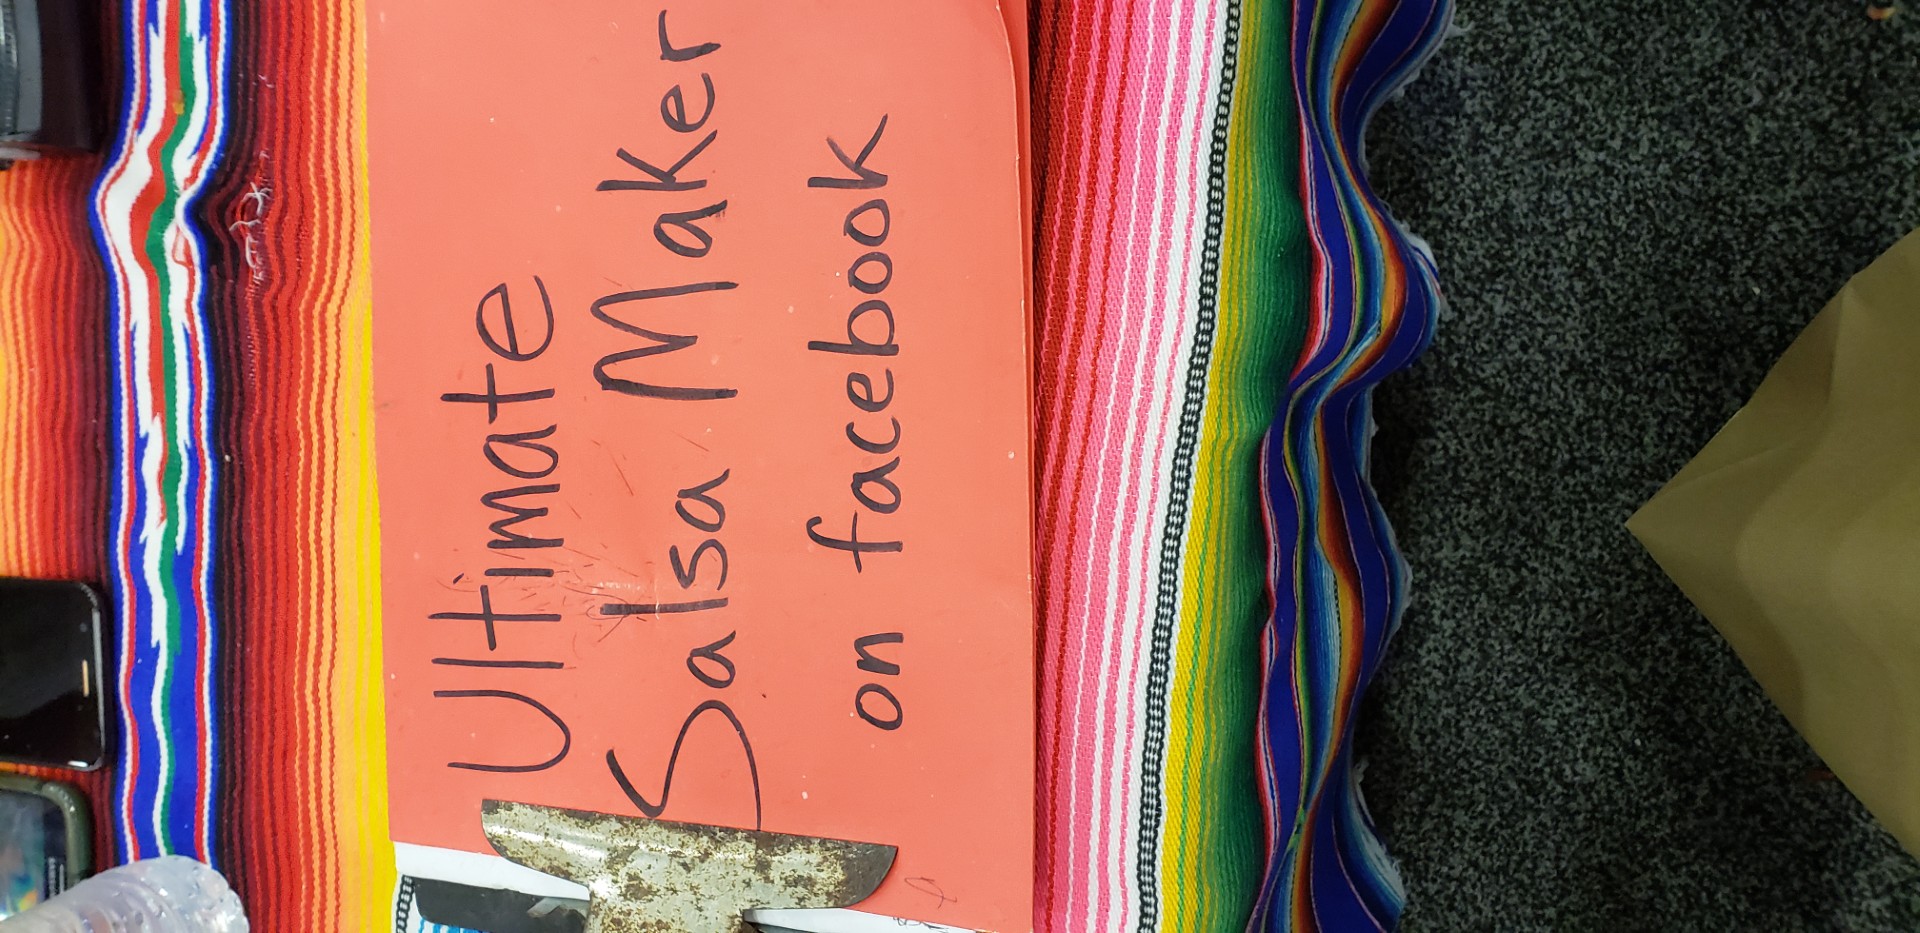 Ultimate
Salsa Maker
on facebook